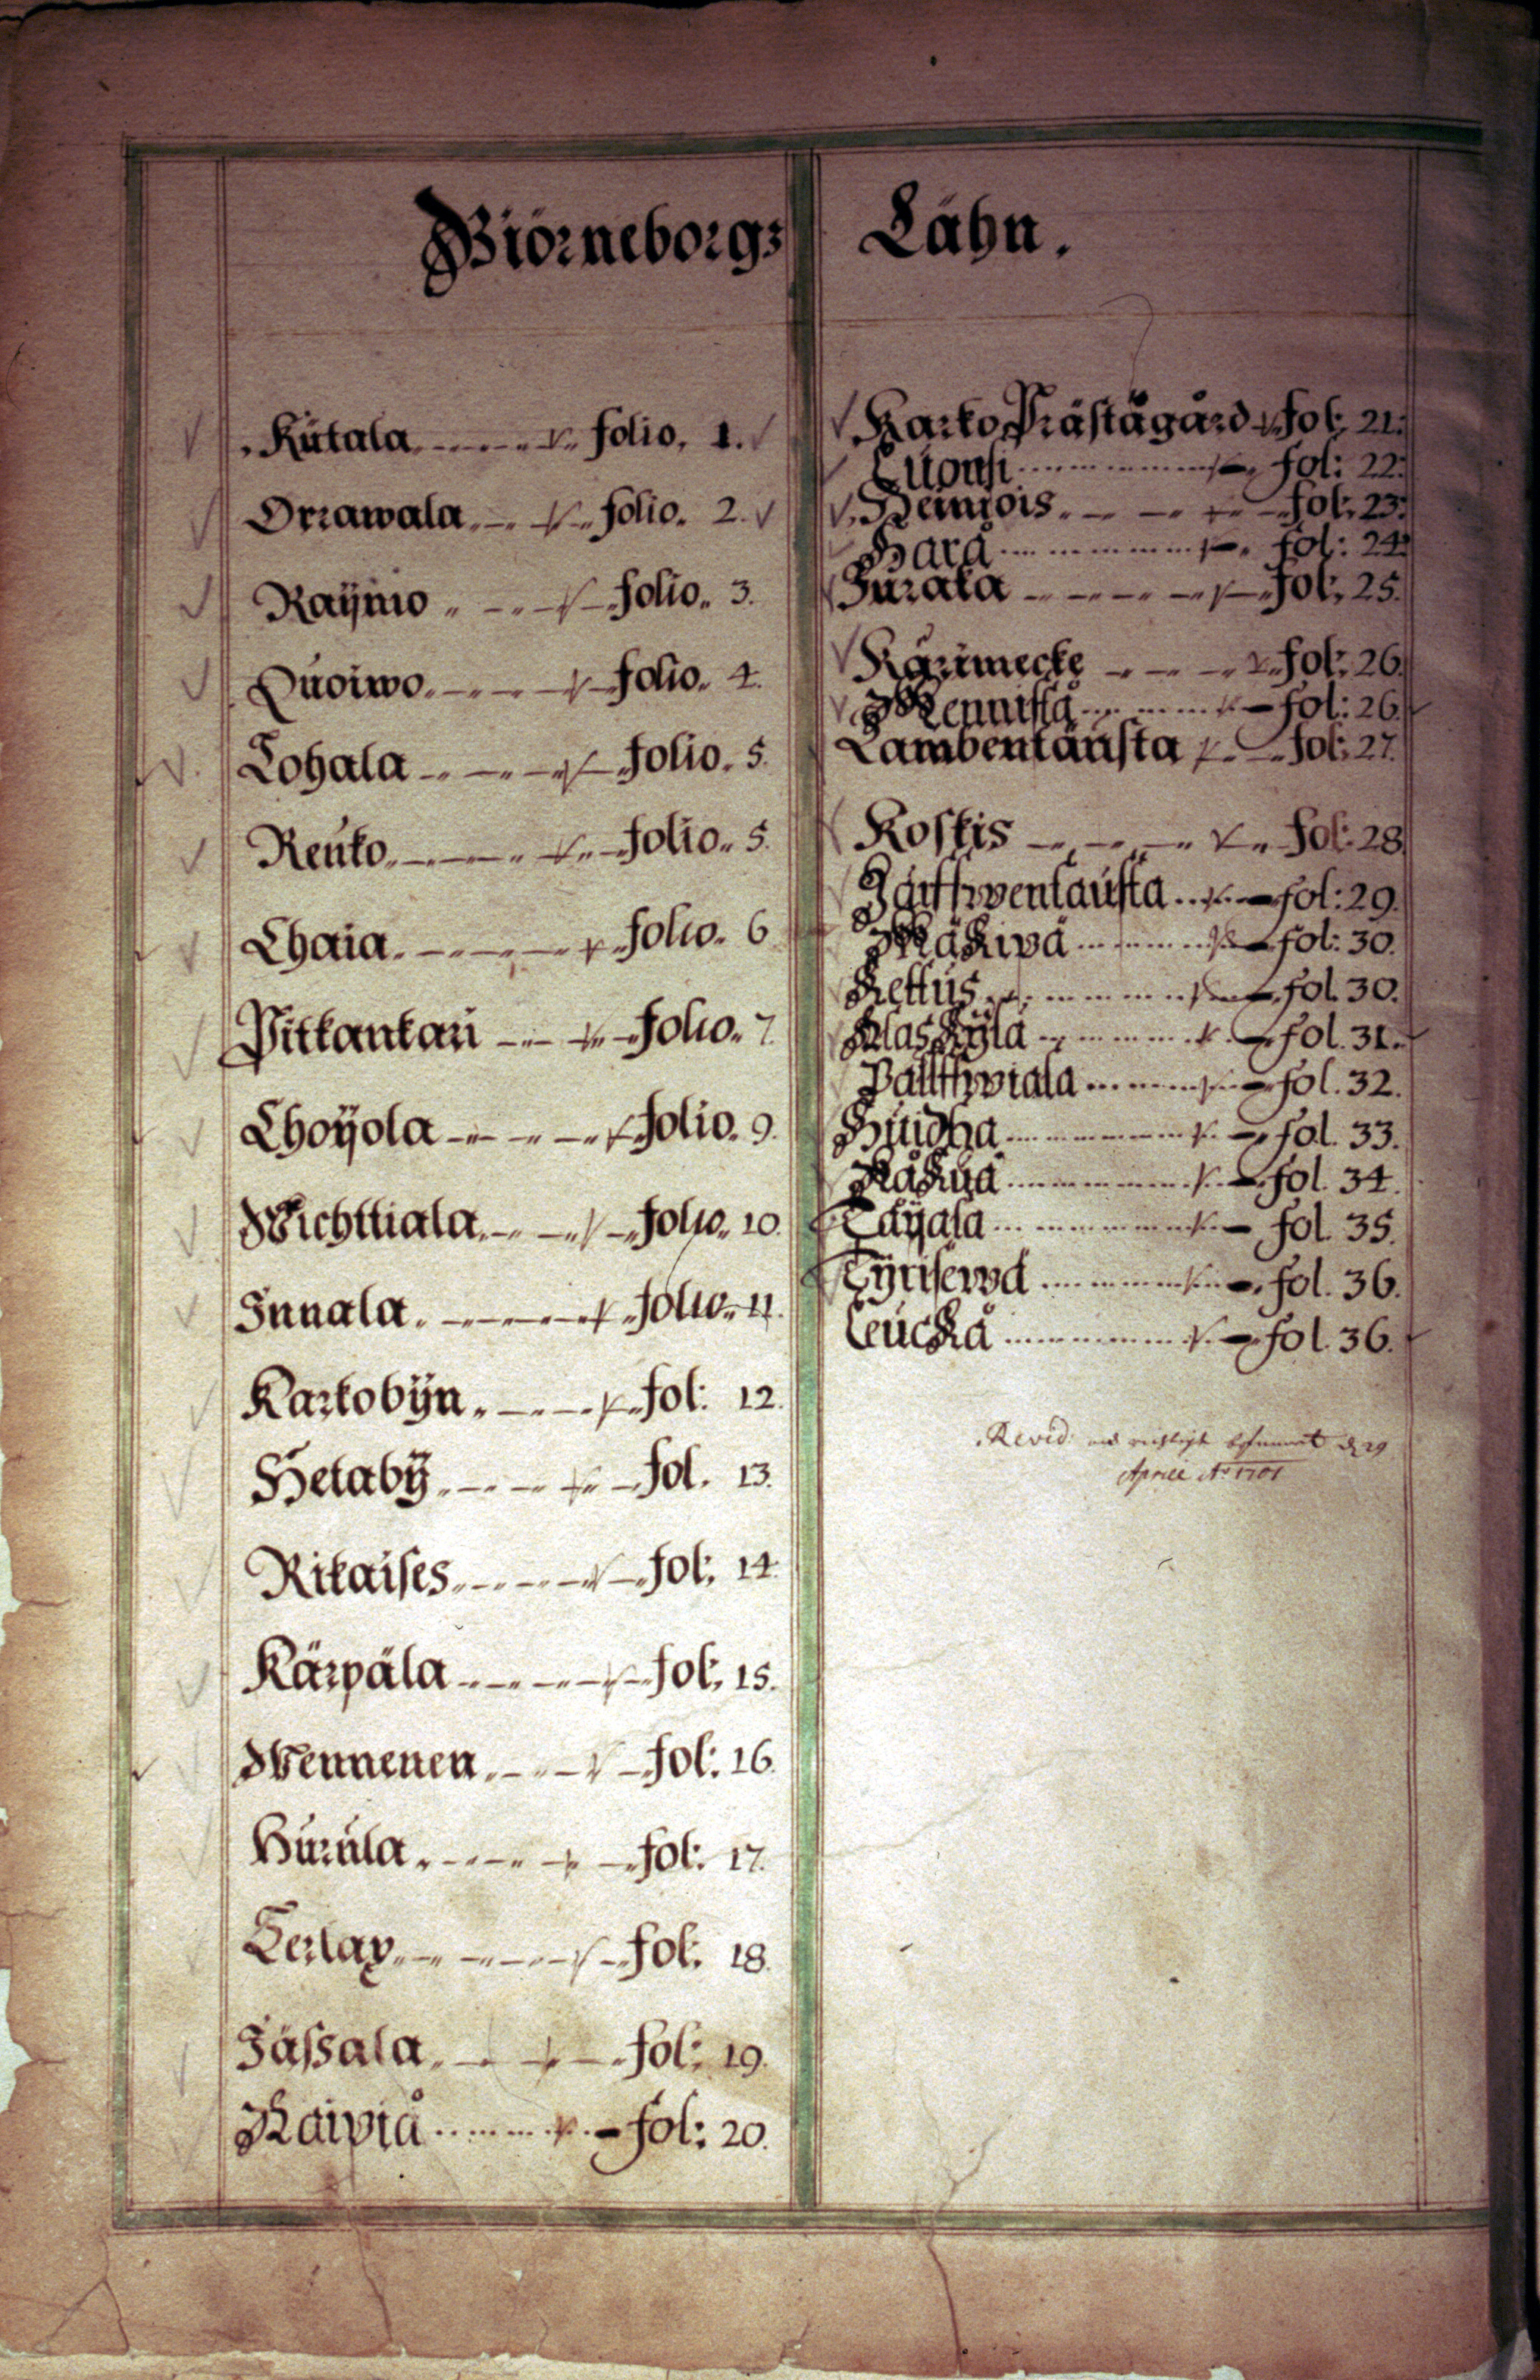 Biörneborgs Lähn.
Kütala folio. 1.
Orrawala folio. 2.
Raÿmo folio. 3.
Quoiwo folio. 4.
Tohala folio. 5.
Reuko folio. 5.
Lhaia folio. 6
Pitkankari folio. 7
Lhoÿola folio. 9.
Wichttiala folio. 10
Innala folio. 11.
Karkobÿn fol: 12.
Hetabÿ fol. 13.
Rikaises fol: 14.
Kärpäla fol: 15.
Wennenen fol: 16.
Hurula fol: 17.
Terlax fol: 18.
Jässala fol: 19.
Raipiå fol: 20.
Karko Prästägård fol: 21:
fol: 22:
Heinjois fol: 23:
Hara fol: 24
Jurala fol: 25.
Kärimecke fol: 26.
Mennistå fol: 26.
Lambentausta fol: 27.
Koskis fol: 28.
fol: 29.
fol: 30.
Kettus fol. 30.
Alaskÿla fol. 31.
fol. 32.
fol. 33.
fol. 34.
fol. 35.
fol. 36.
fol. 36.
Revid: d 29
Aprill A° 1701